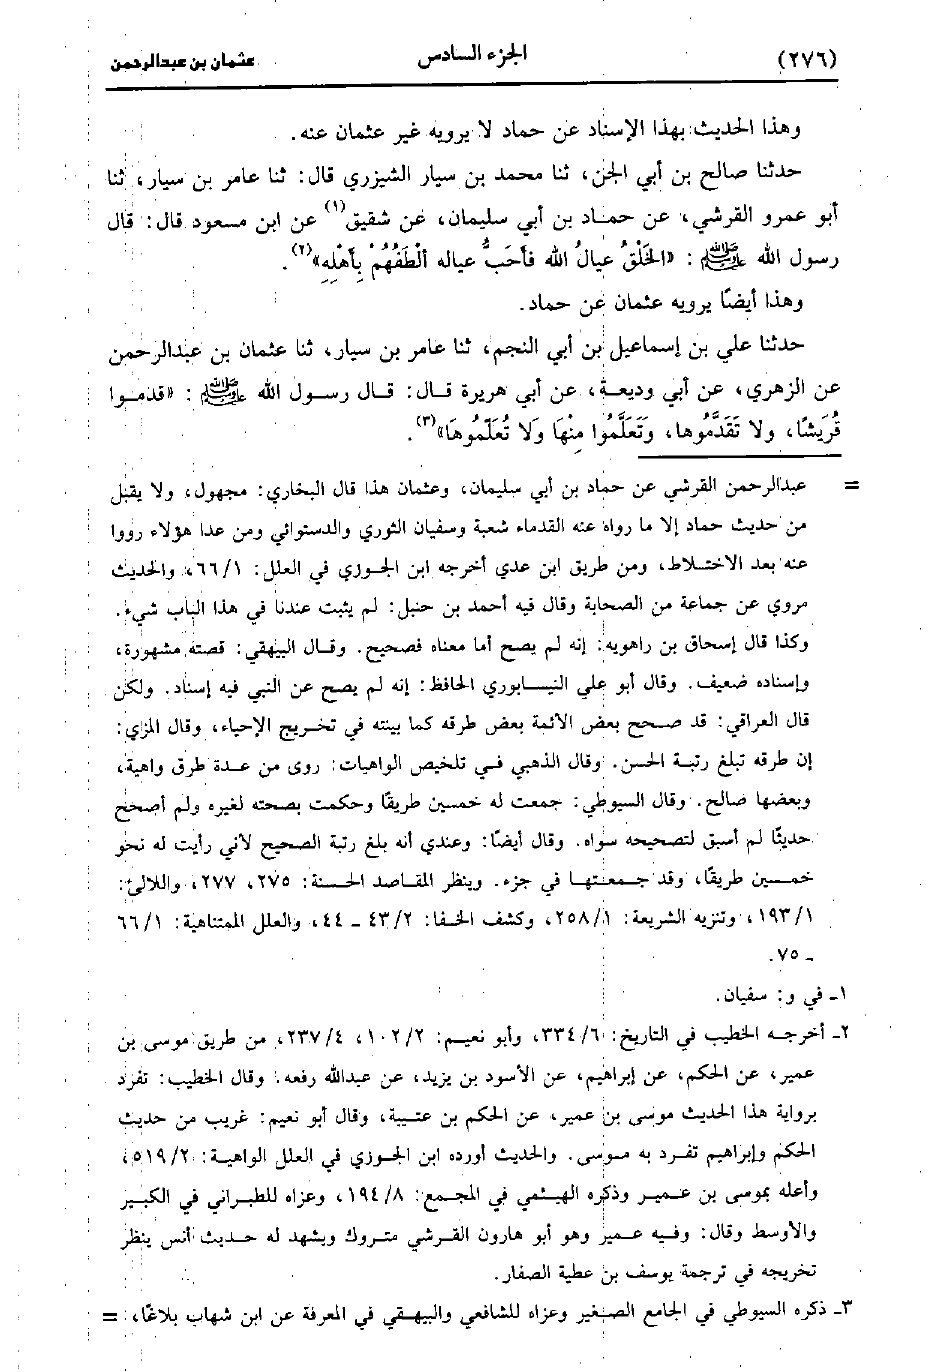 (٢٧٦) الجزء السادس عثمان بن عبدالرحمن
وهذا الحديث بهذا الإسناد عن حماد لا يرويه غير عثمان عنه.
حدثنا صالح بن أبي الجن، ثنا محمد بن سيار الشيزري قال: ثنا عامر بن سيار، ثنا
أبو عمرو القرشي، عن حماد بن أبي سليمان، عن شقيق(١) عن ابن مسعود قال: قال
رسول الله ﷺ: «الخَلْقُ عيالُ الله فأحَبُّ عياله ألْطَفُهُمْ بِأهْلِهِ»(٢).
وهذا أيضًا يرويه عثمان عن حماد.
حدثنا علي بن إسماعيل بن أبي النجم، ثنا عامر بن سيار، ثنا عثمان بن عبدالرحمن
عن الزهري، عن أبي وديعة، عن أبي هريرة قال: قال رسول الله ﷺ: «قدموا
قُرَيشًا، ولا تَقَدَّمُوها، وتَعَلَّمُوا مِنْهَا وَلَا تُعَلِّمُوهَا»(٣).
= عبدالرحمن القرشي عن حماد بن أبي سليمان، وعثمان هذا قال البخاري: مجهول، ولا يقبل
من حديث حماد إلا ما رواه عنه القدماء شعبة وسفيان الثوري والدستوائي ومن عدا هؤلاء رووا
عنه بعد الاختلاط، ومن طريق ابن عدي أخرجه ابن الجوزي في العلل: ٦٦/١، والحديث
مروي عن جماعة من الصحابة وقال فيه أحمد بن حنبل: لم يثبت عندنا في هذا الباب شيء.
وكذا قال إسحاق بن راهويه: إنه لم يصح أما معناه فصحيح. وقال البيهقي: قصته مشهورة،
وإسناده ضعيف. وقال أبو علي النيسابوري الحافظ: إنه لم يصح عن النبي فيه إسناد. ولكن
قال العراقي: قد صحح بعض الأئمة بعض طرقه كما بينته في تخريج الإحياء، وقال المزاي:
إن طرقه تبلغ رتبة الحسن. وقال الذهبي في تلخيص الواهيات: روى من عدة طرق واهية،
وبعضها صالح. وقال السيوطي: جمعت له خمسين طريقًا وحكمت بصحته لغيره ولم أصحح
حديثًا لم أسبق لتصحيحه سواه. وقال أيضًا: وعندي أنه بلغ رتبة الصحيح لأني رأيت له نحو
خمسين طريقًا، وقد جمعتها في جزء. وينظر المقاصد الحسنة: ٢٧٥، ٢٧٧، واللالئ:
١٩٣/١، وتنزيه الشريعة: ٢٥٨/١، وكشف الخفا: ٤٣/٢ ـ ٤٤، والعلل المتناهية: ٦٦/١
ـ ٧٥.
١ـ في و: سفيان.
٢ـ أخرجه الخطيب في التاريخ: ٣٣٤/٦، وأبو نعيم: ١٠٢/٢، ٢٣٧/٤، من طريق موسى بن
عمير، عن الحكم، عن إبراهيم، عن الأسود بن يزيد، عن عبدالله رفعه. وقال الخطيب: تفرد
برواية هذا الحديث موسى بن عمير، عن الحكم بن عتيبة، وقال أبو نعيم: غريب من حديث
الحكم وإبراهيم تفرد به موسى. والحديث أورده ابن الجوزي في العلل الواهية: ٥١٩/٢،
وأعله بموسى بن عمير وذكره الهيثمي في المجمع: ١٩٤/٨، وعزاه للطبراني في الكبير
والأوسط وقال: وفيه عمير وهو أبو هارون القرشي متروك ويشهد له حديث أنس ينظر
تخريجه في ترجمة يوسف بن عطية الصفار.
٣ـ ذكره السيوطي في الجامع الصغير وعزاه للشافعي والبيهقي في المعرفة عن ابن شهاب بلاغًا، =